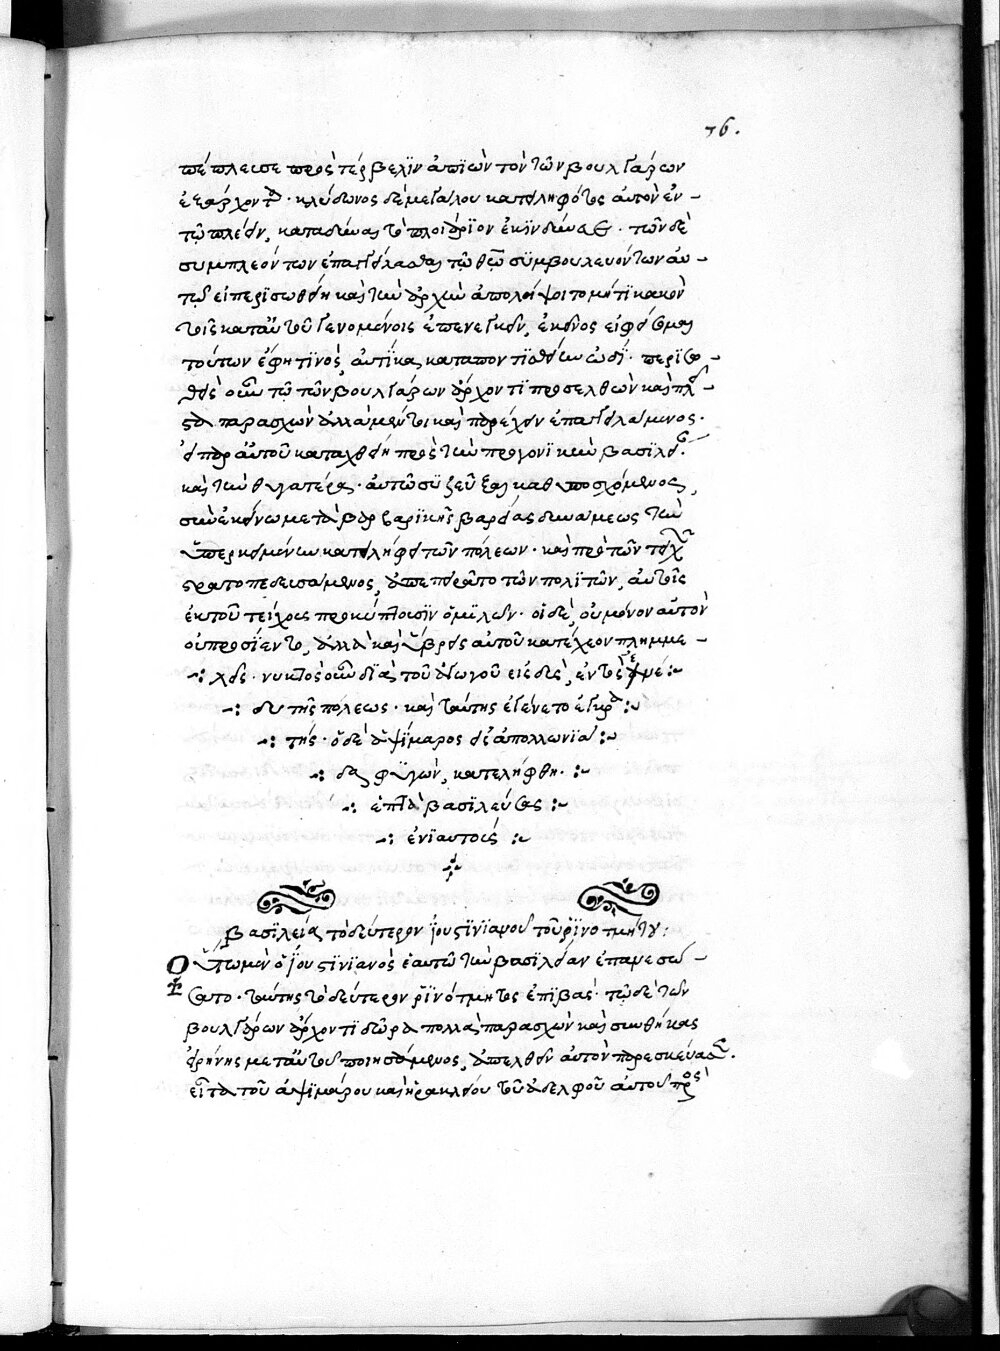 76.
πέπλευσε πρὸς τέρβελϊν ἀπϊὼν τὸν τῶν βουλγάρων
ἐξάρχοντα· κλύδωνος δὲ μεγάλου καταληφότος αὐτὸν ἐν –
τῷ πλεῖν, καταδῦναι τὸ πλοιάρϊον ἐκϊνδύνευσε· τῶν δὲ
συμπλεόντων ἐπαγγείλασθαι τῷ θῶ συμβουλευόντων αὐ –
τῷ εἰ περϊσωθείη καὶ τὴν ἀρχὴν ἀπολήψοιτο μήτϊ κακὸν
τοῖς κατ' αὐτοῦ γενομένοις ἐπενεγκεῖν, ἐκεῖνος εἰ φείσομαι
τούτων ἔφη τϊνὸς, αὐτίκα καταποντϊσθείην ὧδϊ· περϊσω –
θεὶς οὖν τῷ τῶν βουλγάρων ἄρχοντϊ προσελθὼν καὶ πλεῖ –
στα παρασχὼν ἀλλὰ μέντοι καὶ παρέχειν ἐπαγγειλάμενος·
εἰ παρ' αὐτοῦ καταχθείη πρὸς τὴν προγονϊκὴν βασϊλείαν.
καὶ τὴν θυγατέρα· αὐτῷ συζεῦξαι καθυποσχόμενος,
σὺν ἐκείνω μετὰ βαρβαρϊκῆς βαρείας δυνάμεως τὴν
ὑπερκειμένην κατειλήφει τῶν πόλεων· καὶ πρὸ τῶν τειχῶν
στρατοπεδευσάμενος, ἀπεπειρᾶτο τῶν πολϊτῶν, αὐτοῖς
ἐκ τοῦ τείχους προκύπτουσϊν ὁμϊλῶν· οἱ δὲ, οὐ μόνον αὐτὸν
οὐ προσίεντο, ἀλλὰ καὶ ὕβρεις αὐτοῦ κατέχεον πλημμε –
λεῖς· νυκτὸς οὖν δϊὰ τοῦ ἀγωγοῦ εἰσδὺς, ἐντὸς ἐγέ
νετο τῆς πόλεως· καὶ ταύτης ἐγένετο ἐγκρα
τής· ὁ δὲ ἀψίμαρος εἰς ἀπολλωνιά
δα φϋγὼν, κατελήφθη.
ἑπτὰ βασϊλεύσας
ἐνϊαυτούς
Βασϊλεία τὸ δεύτερον ϊουστϊνϊανοῦ τοῦ ῥϊνοτμήτου:
Οὕτω μὲν ὁ ϊουστϊνϊανὸς ἑαυτῷ τὴν βασϊλείαν ἐπανεσώ –
σατο· ταύτης τὸ δεύτερον ῥϊνότμητος ἐπϊβὰς· τῷ δὲ τῶν
βουλγάρων ἄρχοντϊ δῶρα πολλὰ παρασχὼν καὶ συνθήκας
εἰρήνης μετ' αὐτοῦ ποιησάμενος, ἀπελθεῖν αὐτὸν παρεσκεύασε.
εἶτα τοῦ ἀψϊμάρου καὶ ἡρακλείου τοῦ ἀδελφοῦ αὐτοῦ πρὸς